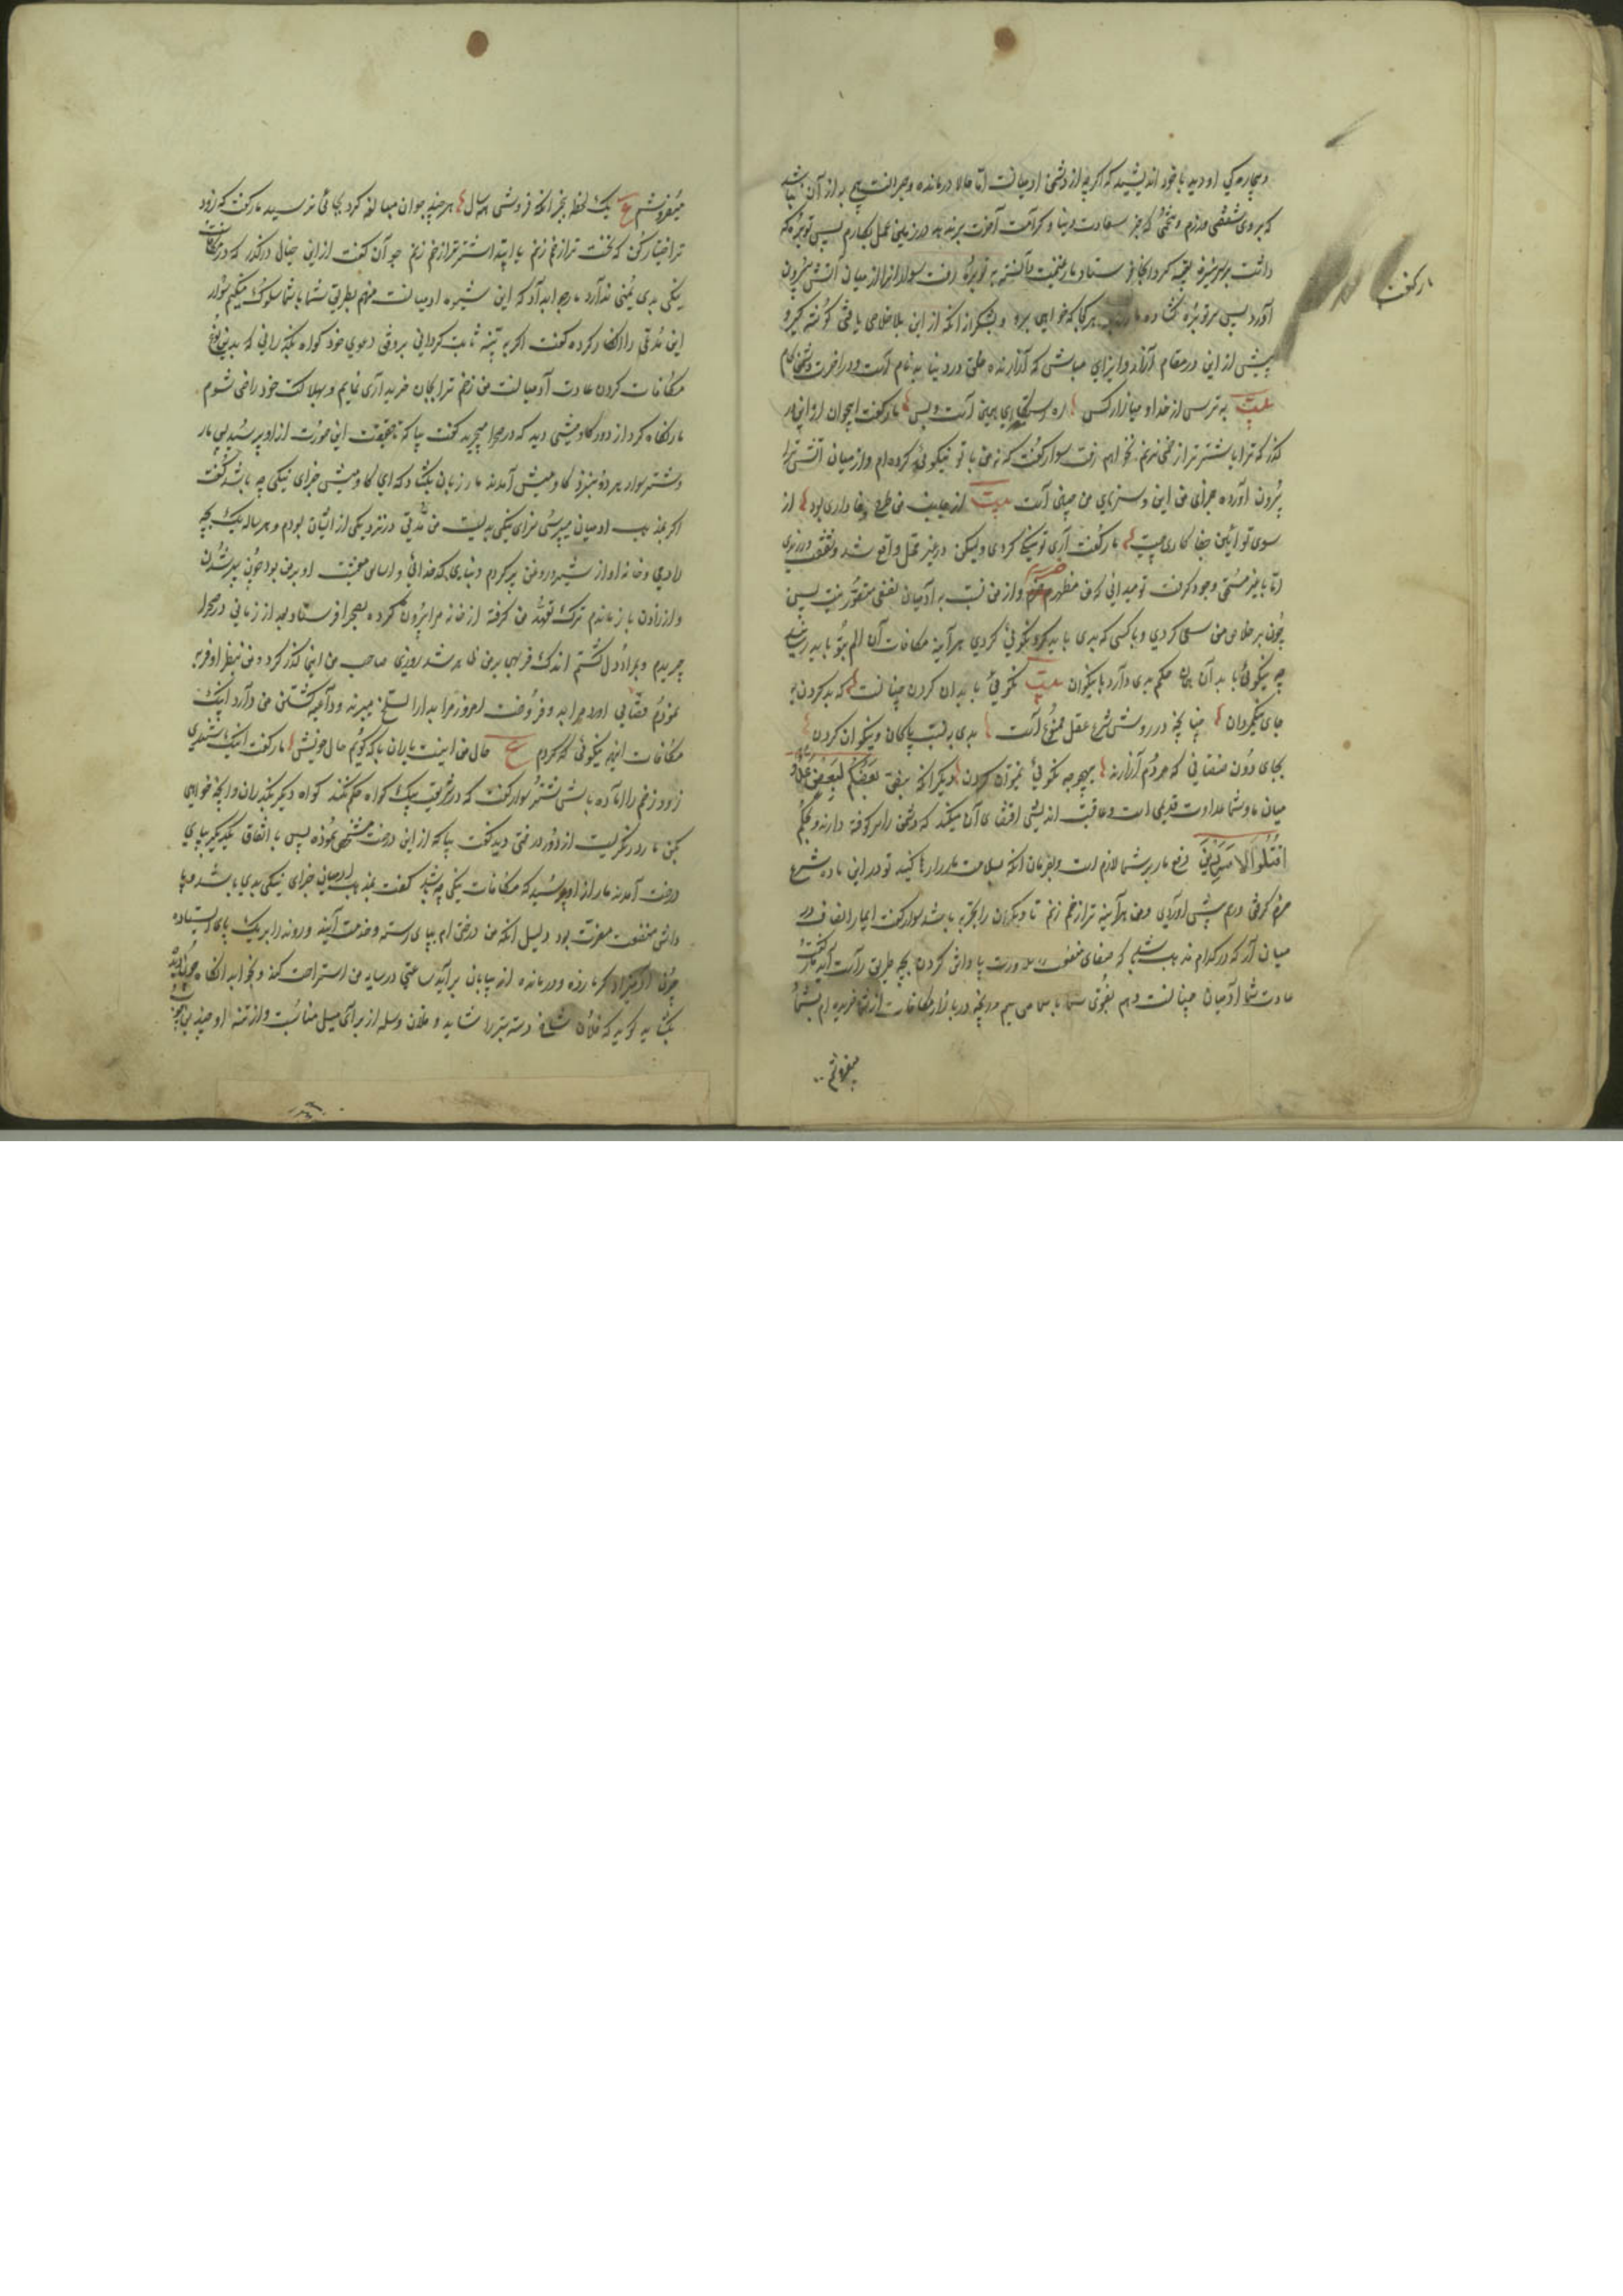 و بیچارگی او دید با خود اندیشید که اگرچه از دشمن آدمیانست اما حالا درمانده و حیرانست هیچ به از آن نباشد
که بر وی شفقتی ورزم و تخمی که جز سعادت دنیا و کرامت آخرت برندهد در زمین عمل بکارم پس توبره که
داشت بر سر نیزه تعبیه کرد و آنجا فرستاد مار غنیمت دانسته به توبره رفت سوار او را از میان آتش بیرون
آورد پس سر توبره گشاده مار را گفت هرکجا که خواهی برو و بشکرانه آنکه ازین بلا خلاصی یافتی گوشه گیر و
پیش ازین در مقام آزار و ایذای مباش که آزارنده خلق در دنیا بدنام است و در آخرت دشمن‌کام
بیت به ترس از خدا و میازار کس ره رستگاری همین است و بس مار گفت ای جوان ازین در
گذر که ترا با شتر تو زخمی نزنم نخواهم رفت سوار گفت که نه من با تو نیکوئی کرده‌ام و از میان آتش ترا
بیرون آورده جزای من این و سزای من چنین است بیت از جانب من طرح وفاداری بود از
سوی تو آئین جفاکاری چیست مار گفت آری تو نیکی کردی ولیکن در غیر محل واقع شد و شفقت ورزیدی
اما با غیر مستحق وجود گرفت تو میدانی که من مظهر ضررم و از من نسبت بر آدمیان نفعی متصور نیست پس
چون بر خلاصی من سعی کردی و با کسی که بدی بایست کرد نیکوئی کردی هرآینه مکافات آن المی بتو باید رسانید
چه نیکوئی با بدان همان حکم بدی دارد با نیکوان بیت نکوئی با بدان کردن چنانست که بد کردن به
جای نیکمردان چنانچه در روش شرع و عقل ممنوع است بدی نسبت پاکان و نیکوان کردن
بجای دون صفتانی که مردم آزارند بهیچ وجه نکوئی نمیتوان کردن دیگر آنکه برطبق بعضکم لبعض عدو
میان ما و شما عداوت قدیمی است و عاقبت اندیشی اقتضای آن میکند که دشمن را سر کوفته دارند و بحکم
اقتلوا الاسودین دفع مار بر شما لازم است و بفرمان آنکه سلامت مار را رها کنید تو در این ماده شرع
حزم گرفتی و رحم پیش آوردی و من هرآینه ترا زخم زنم تا دیگران را تجربه باشد سوار گفت ای مار انصاف در
میان آر که در کدام مذهب باشد که صفای منفعت را بکدورت پاداش کردن بچه طریق راست آید مار گفت
عادت شما آدمیان چنانست و هم بفتوی شما با شما می
میفروشم ..
مار گفت
میفروشم ع یک لحظه بخر آنچه فروشی همه سال هر چند جوان مبالغه کرد بجائی نرسید مار گفت که زود
ترا اختیار کن که نخست ترا زخم زنم یا ابتدا شتر ترا زخم زنم جوان گفت از این خیال درگذر که در مکافات
نیکی بدی یمنی ندارد مار جواب داد که این شیوه آدمیانست منهم بطریق شما با شما سلوک میکنم سوار
این مدعی را انکار کرده گفت اگر به بینه ثابت گردانی بر وفق دعوی خود گواه بگذرانی که بدین نوع
مکافات کردن عادت آدمیانست من زخم ترا بجان خریداری نمایم و بهلاکت خود راضی شوم
مار نگاه کرد از دور گاومیشی دید که در صحرا میچرید گفت بیا که تا حقیقت این صورت از او پرسیم پس مار
و شترسوار هر دو بنزد گاومیش آمدند مار زبان بگشاد که ای گاومیش جزای نیکی چه باشد گفت
اگر بمذهب آدمیان میپرسی سزای نیکی بدیست من مدتی در نزد یکی از ایشان بودم و هر ساله یک بچه
دادمی و خانه او از شیر و روغن پر کردم و بنای کدخدائی و اساس معیشت او بر من بود چون پیر شدم
و از زادن باز ماندم ترک تعهد من گرفته از خانه مرا بیرون کرده بصحرا فرستاد بعد از زمانی در صحرا
چریدم و بمراد دل گشتم اندک فربهی بر من ظاهر شد روزی صاحب من اینجا گذر کرد و من بنظر او فربه
نمودم قصابی آورد مرا بدو فروخت امروز مرا به دارالسلخ میبرند و داعیه کشتن من دارد اینک
مکافات اینهمه نیکوئی که کردم ع حال من اینست یاران با که گویم حال خویش مار گفت اینک شنیدی
زود زخم را آماده باش شترسوار گفت که در شریعت بیک گواه حکم نکنند گواه دیگر بگذران و آنچه خواهی
بکن مار درنگریست از دور درختی دید گفت بیا که از این درخت نموده پس با اتفاق یکدیگر بپای
درخت آمدند مار از او پرسید که مکافات نیکی چه باشد گفت بمذهب آدمیان جزای نیکی بدی باشد و پا
داش منفعت مضرت بود دلیل آنکه من درختی‌ام بپای رسته و خدمت آینده و رونده را بر یک پای ایستاده
چون آدمیزاد گرما زده و درمانده از بیابان برآید ساعتی در سایه من استراحت کند و بخوابد آنگاه چون دیده
بگشاید گوید که فلان شاخ دسته تبر را شاید و فلان وصله از برای میل مناسبست و از تنه او چند